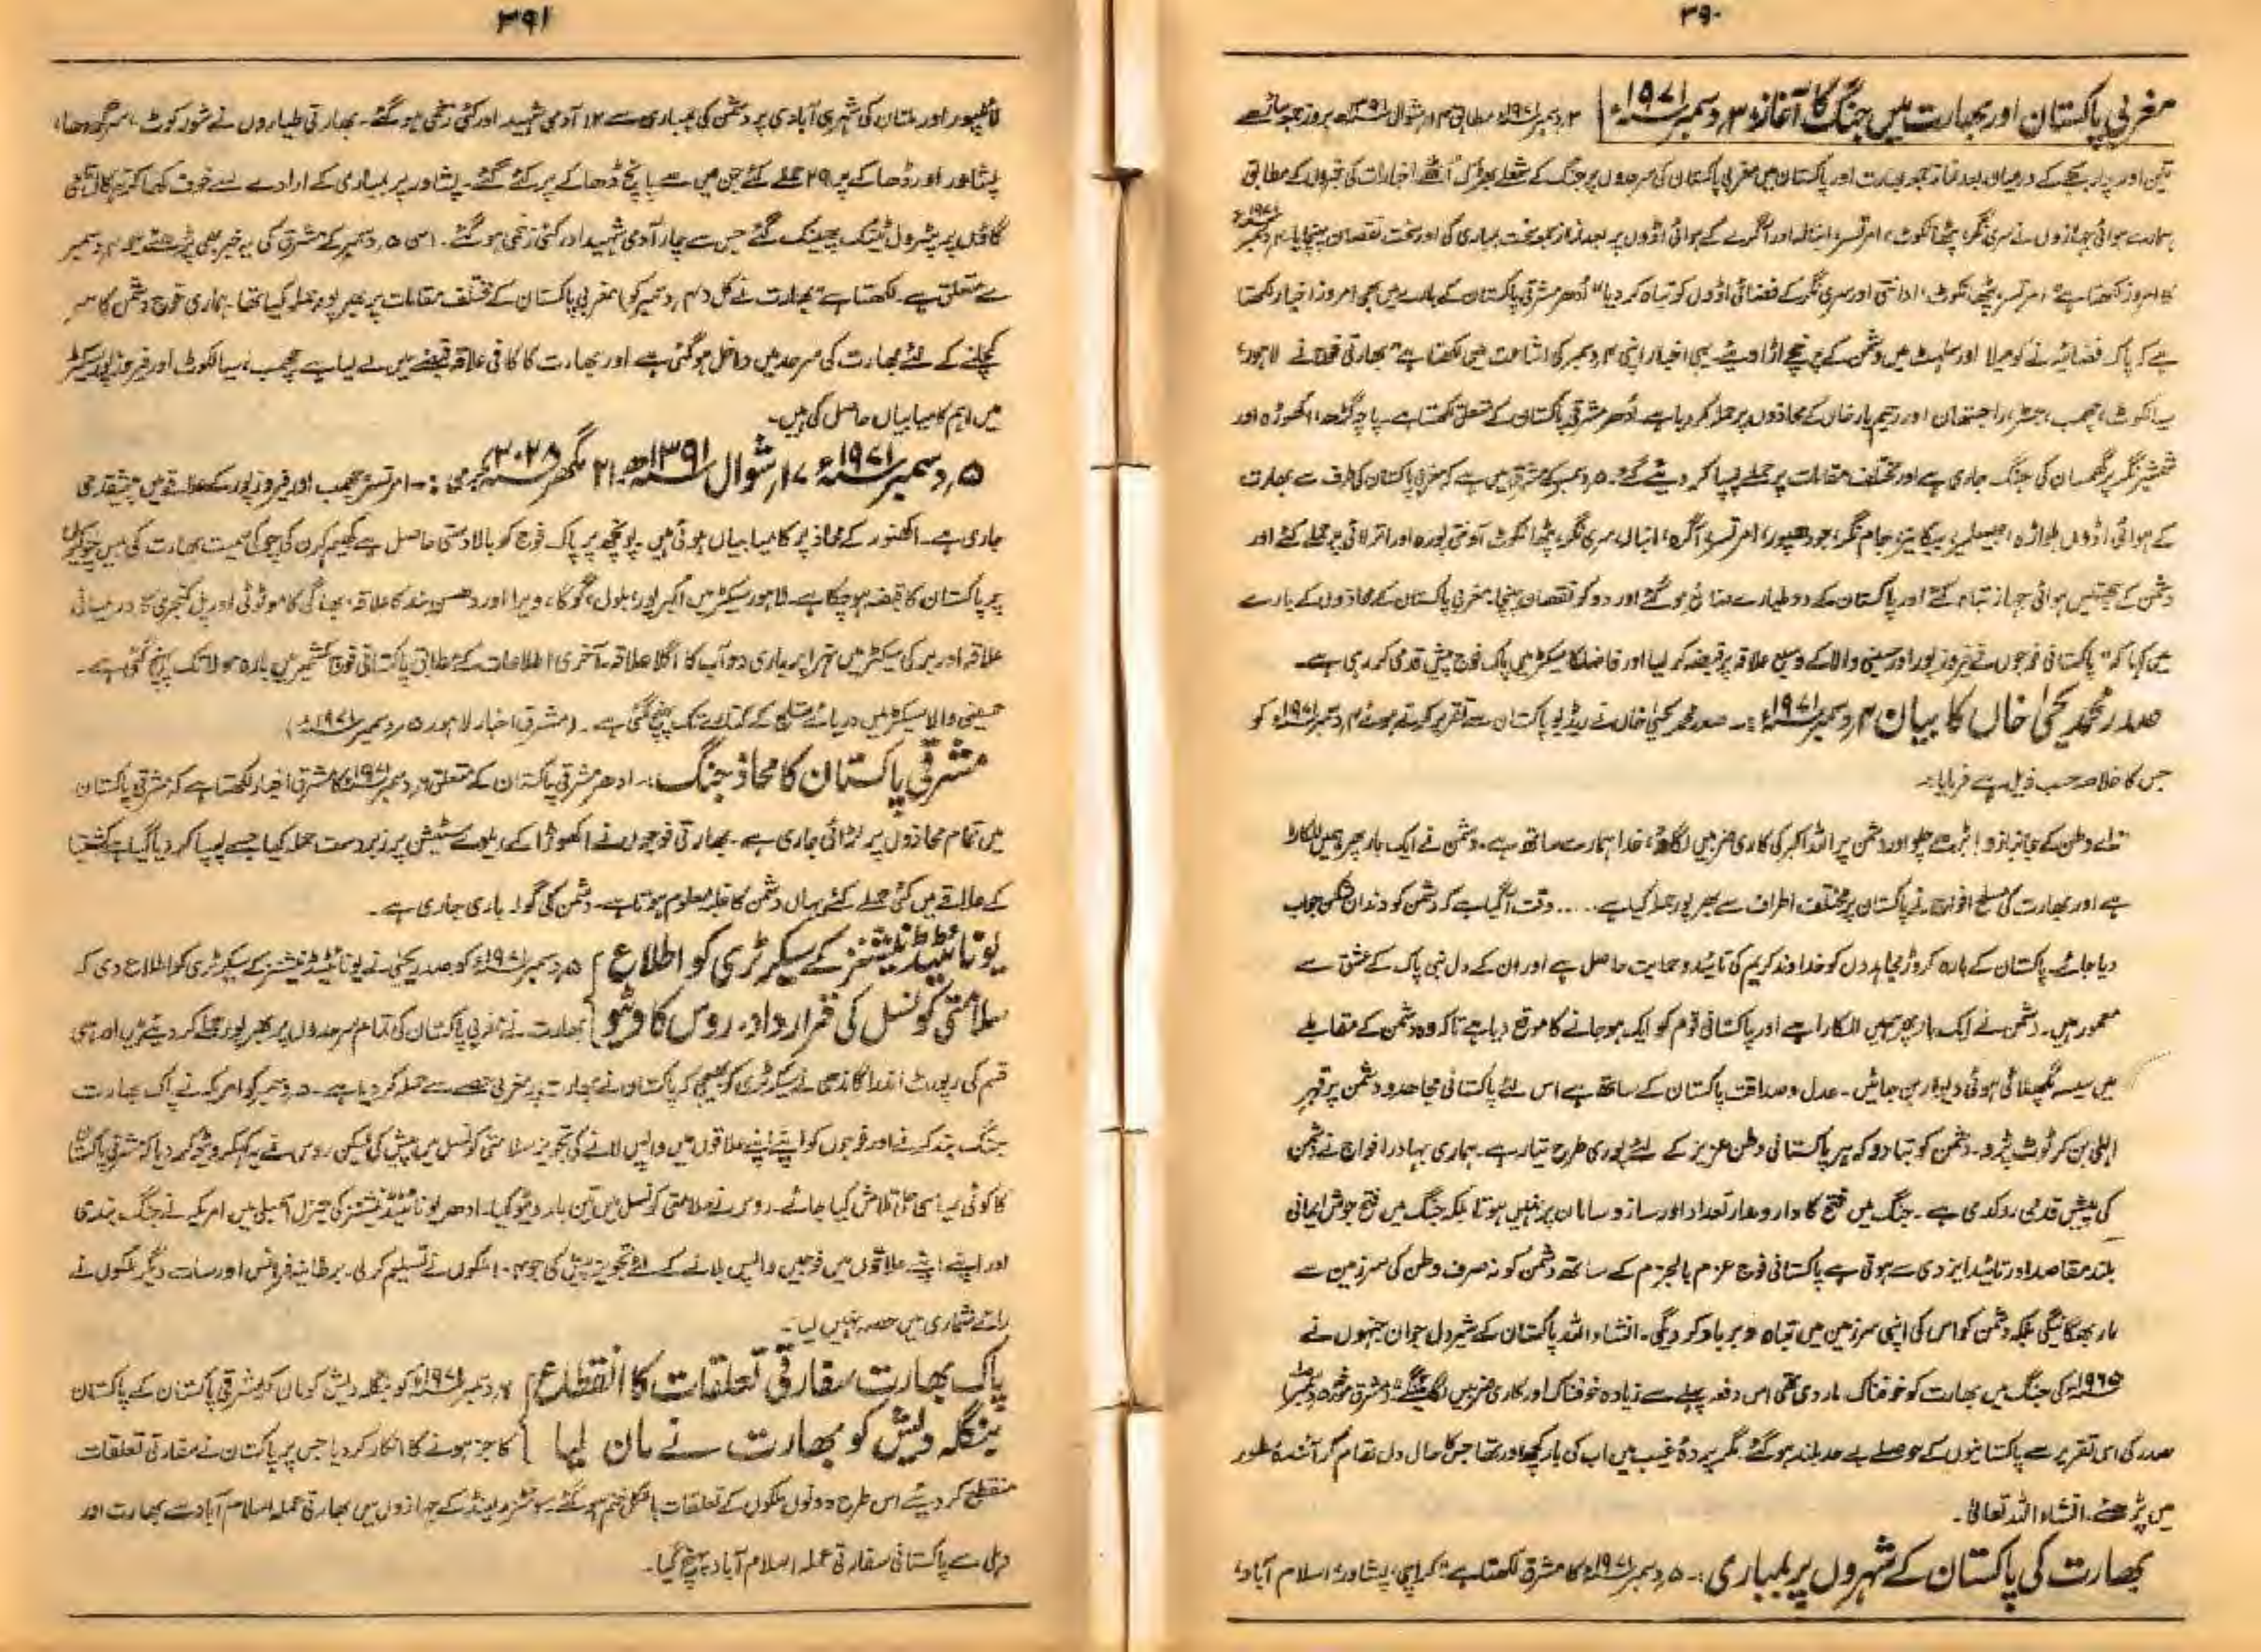 ۳۹۰
مغربی پاکستان اور بھارت میں جنگ کا آغاز ۳ دسمبر ۱۹۷۱ء ۳ دسمبر ۱۹۷۱ء مطابق ۱۴ شوال ۱۳۹۱ھ بروز جمعہ ساڑھے
تین اور چار بجے کے درمیان بعد نماز جمعہ بھارت اور پاکستان میں مغربی پاکستان کی سرحدوں پر جنگ کے شعلے بھڑک اٹھے اخبارات کی خبروں کے مطابق
ہمارے ہوائی جہازوں نے سری نگر، پٹھانکوٹ، امرتسر، انبالہ اور آگرے کے ہوائی اڈوں پر بعد نماز جمعہ سخت بمباری کی اور سخت نقصان پہنچایا۔ ۴ دسمبر ۱۹۷۱ء
کا امروز لکھتا ہے "امرتسر، پٹھانکوٹ، اونتی اور سری نگر کے فضائی اڈوں کو تباہ کر دیا" اُدھر مشرقی پاکستان کے بارے میں بھی امروز اخبار لکھتا
ہے کہ پاک فضائیہ نے کومیلا اور سلہٹ میں دشمن کے پرخچے اڑا دیئے۔ یہی اخبار اپنی ۴ دسمبر کی اشاعت میں لکھتا ہے "بھارتی فوج نے لاہور،
سیالکوٹ، چھمب، جسڑ، راجستھان اور رحیم یار خاں کے محاذوں پر حملہ کر دیا ہے۔ اُدھر مشرقی پاکستان کے متعلق لکھتا ہے پاچہ گڑھ، اکھوڑہ اور
شمشیر نگر پر گھمسان کی جنگ جاری ہے اور مختلف مقامات پر حملے پسپا کر دیئے گئے۔ ۵ دسمبر کے مشرق میں ہے کہ مغربی پاکستان کی طرف سے بھارت
کے ہوائی اڈوں ہلواڑہ، جیسلمیر، بیکانیر، جام نگر، جودھپور، امرتسر، آگرہ، انبالہ، سری نگر، پٹھانکوٹ، آونتی پورہ اور اترلائی پر حملے کئے اور
دشمن کے چھتیس ہوائی جہاز تباہ کئے اور پاکستان کے دو طیارے ضائع ہو گئے اور دو کو نقصان پہنچا۔ مغربی پاکستان کے محاذوں کے بارے
میں کہا کہ "پاکستانی فوجوں نے فیروز پور اور حسینی والا کے وسیع علاقہ پر قبضہ کر لیا اور فاضلکا سیکٹر میں پاک فوج پیش قدمی کر رہی ہے۔
صدر محمد یحییٰ خاں کا بیان ۴ دسمبر ۱۹۷۱ء:۔ صدر محمد یحییٰ خاں نے ریڈیو پاکستان سے تقریر کرتے ہوئے ۴ دسمبر ۱۹۷۱ء کو
جس کا خلاصہ حسب ذیل ہے فرمایا:۔
"اے وطن کے جانبازو! بڑھے چلو اور دشمن پر اللہ اکبر کی کاری ضربیں لگاؤ، خدا ہمارے ساتھ ہے۔ دشمن نے ایک بار پھر ہمیں للکارا
ہے اور بھارت کی مسلح افواج نے پاکستان پر مختلف اطراف سے بھرپور حملہ کیا ہے..... وقت آ گیا ہے کہ دشمن کو دندان شکن جواب
دیا جائے۔ پاکستان کے بارہ کروڑ مجاہدوں کو خداوند کریم کی تائید و حمایت حاصل ہے اور ان کے دل نبی پاک کے عشق سے
معمور ہیں۔ دشمن نے ایک بار پھر ہمیں للکارا ہے اور پاکستانی قوم کو ایک ہو جانے کا موقع دیا ہے تاکہ وہ دشمن کے مقابلے
میں سیسہ پگھلائی ہوئی دیوار بن جائیں۔ عدل و صداقت پاکستان کے ساتھ ہے اس لئے پاکستانی مجاہدو دشمن پر قہرِ
الٰہی بن کر ٹوٹ پڑو۔ دشمن کو بتا دو کہ ہر پاکستانی وطن عزیز کے لئے پوری طرح تیار ہے۔ ہماری بہادر افواج نے دشمن
کی پیش قدمی روک دی ہے۔ جنگ میں فتح کا دارومدار تعداد اور ساز و سامان پر نہیں ہوتا بلکہ جنگ میں فتح جوش ایمانی
بلند مقاصد اور تائید ایزدی سے ہوتی ہے پاکستانی فوج عزم بالجزم کے ساتھ دشمن کو نہ صرف وطن کی سرزمین سے
مار بھگائیگی بلکہ دشمن کو اس کی اپنی سرزمین میں تباہ و برباد کر دیگی۔ انشاء اللہ پاکستان کے شیر دل جوان جنہوں نے
۱۹۶۵ء کی جنگ میں بھارت کو خوفناک مار دی تھی اس دفعہ پہلے سے زیادہ خوفناک اور کاری ضربیں لگائینگے" مشرق مورخہ ۵ دسمبر
صدر کی اس تقریر سے پاکستانیوں کے حوصلے بے حد بلند ہو گئے۔ مگر پردۂ غیب میں اب کی بار کچھ اور تھا جس کا حال دل تھام کر آئندہ سطور
میں پڑھئے۔ انشاء اللہ تعالیٰ۔
بھارت کی پاکستان کے شہروں پر بمباری:۔ ۵ دسمبر ۱۹۷۱ء کا مشرق لکھتا ہے "کراچی، پشاور، اسلام آباد،
۳۹۱
لائلپور اور ملتان کی شہری آبادی پر دشمن کی بمباری سے ۱۲ آدمی شہید اور کئی زخمی ہو گئے۔ بھارتی طیاروں نے شورکوٹ، سرگودھا،
پشاور اور ڈھاکے پر ۲۹ حملے کئے جن میں سے پانچ ڈھاکے پر کئے گئے۔ پشاور پر بمباری کے ارادے سے خوف کھا کر
گاؤں پر پٹرول ٹینک پھینک گئے جس سے چار آدمی شہید اور کئی زخمی ہو گئے۔ اسی ۵ دسمبر کے مشرق کی یہ خبر بھی پڑھئے جو ۴ دسمبر
سے متعلق ہے۔ لکھتا ہے "بھارت نے کل (۴ دسمبر کو) مغربی پاکستان کے مختلف مقامات پر بھرپور حملہ کیا تھا۔ ہماری فوج دشمن کا سر
کچلنے کے لئے بھارت کی سرحد میں داخل ہو گئی ہے اور بھارت کا کافی علاقہ قبضے میں لے لیا ہے چھمب، سیالکوٹ اور فیروز پور سیکٹر
میں اہم کامیابیاں حاصل کی ہیں۔
۵ دسمبر ۱۹۷۱ء ۱۷ شوال ۱۳۹۱ھ ۲۱ مگھر ۲۰۲۸ بکرمی:۔ امرتسر، چھمب اور فیروز پور کے علاقے میں پیشقدمی
جاری ہے۔ اکھنور کے محاذ پر کامیابیاں ہوئی ہیں۔ پونچھ پر پاک فوج کو بالا دستی حاصل ہے کھیم کرن کی چوکی سمیت بھارت کی بیس چوکیوں
پر پاکستان کا قبضہ ہو چکا ہے۔ لاہور سیکٹر میں اکبر پور، بلول، گوگا، ویرا اور دھسی بند کا علاقہ، بھاگی کا موٹوئی اور پل کنجری کا درمیانی
علاقہ اور برکی سیکٹر میں نہر اپر باری دوآب کا اگلا علاقہ۔ آخری اطلاعات کے مطابق پاکستانی فوج کشمیر میں بارہ مولا تک پہنچ گئی ہے۔
حسینی والا سیکٹر میں دریائے ستلج کے کنارے تک پہنچ گئی ہے۔ (مشرق اخبار لاہور ۵ دسمبر ۱۹۷۱ء)
مشرقی پاکستان کا محاذ جنگ:۔ ادھر مشرقی پاکستان کے متعلق ۶ دسمبر ۱۹۷۱ء کا مشرق اخبار لکھتا ہے کہ مشرقی پاکستان
میں تمام محاذوں پر لڑائی جاری ہے۔ بھارتی فوجوں نے اکھوڑا کے ریلوے سٹیشن پر زبردست حملہ کیا جسے پسپا کر دیا گیا ہے کشتیا
کے علاقے میں کئی حملے کئے یہاں دشمن کا غلبہ معلوم ہوتا ہے۔ دشمن کی گولہ باری جاری ہے۔
یونائیٹڈ نیشنز کے سیکرٹری کو اطلاع ۵ دسمبر ۱۹۷۱ء کو صدر یحییٰ نے یونائیٹڈ نیشنز کے سیکرٹری کو اطلاع دی کہ
سلامتی کونسل کی قرارداد۔ روس کا ویٹو بھارت نے مغربی پاکستان کی تمام سرحدوں پر بھرپور حملے کر دیئے ہیں اور اسی
قسم کی رپورٹ اندرا گاندھی نے سیکرٹری کو بھیجی کہ پاکستان نے بھارت پر مغربی حصے سے حملہ کر دیا ہے۔ ۵ دسمبر کو امریکہ نے پاک بھارت
جنگ بند کرنے اور فوجوں کو اپنے اپنے علاقوں میں واپس لانے کی تجویز سلامتی کونسل میں پیش کی لیکن روس نے یہ کہکر ویٹو کر دیا کہ مشرقی پاکستان
کا کوئی سیاسی حل تلاش کیا جائے۔ روس نے سلامتی کونسل میں تین بار ویٹو کیا۔ ادھر یونائیٹڈ نیشنز کی جنرل اسمبلی میں امریکہ نے جنگ بندی
اور اپنے اپنے علاقوں میں فوجیں واپس بلانے کے لئے تجویز پیش کی جو ۱۰۴ ملکوں نے تسلیم کر لی۔ برطانیہ فرانس اور سات دیگر ملکوں نے
رائے شماری میں حصہ نہیں لیا۔
پاک بھارت سفارتی تعلقات کا انقطاع ۶ دسمبر ۱۹۷۱ء کو بنگلہ دیش کو مان کر مشرقی پاکستان کے پاکستان
بنگلہ دیش کو بھارت نے مان لیا کا جز ہونے کا انکار کر دیا جس پر پاکستان نے سفارتی تعلقات
منقطع کر دیئے اس طرح دونوں ملکوں کے تعلقات بالکل ختم ہو گئے۔ سوئٹزرلینڈ کے جہازوں میں بھارتی عملہ اسلام آباد سے بھارت اور
دہلی سے پاکستانی سفارتی عملہ اسلام آباد پہنچ گیا۔